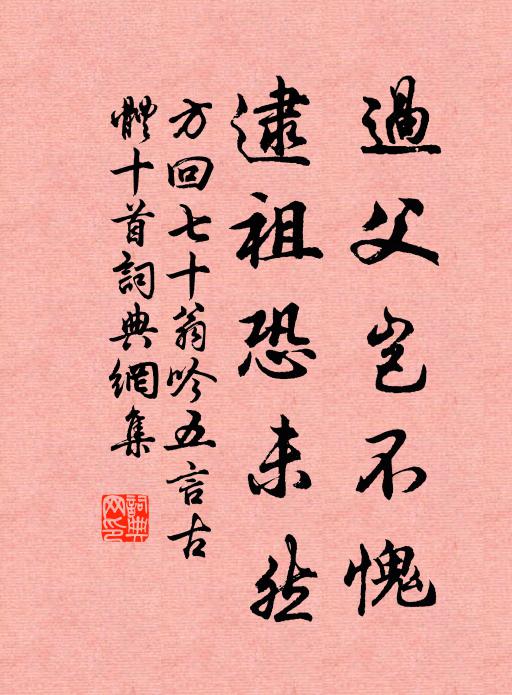 過父豈不愧
逮祖恐未然
方回七十翁吟五言古
體十首詞典網集
詞典
网印